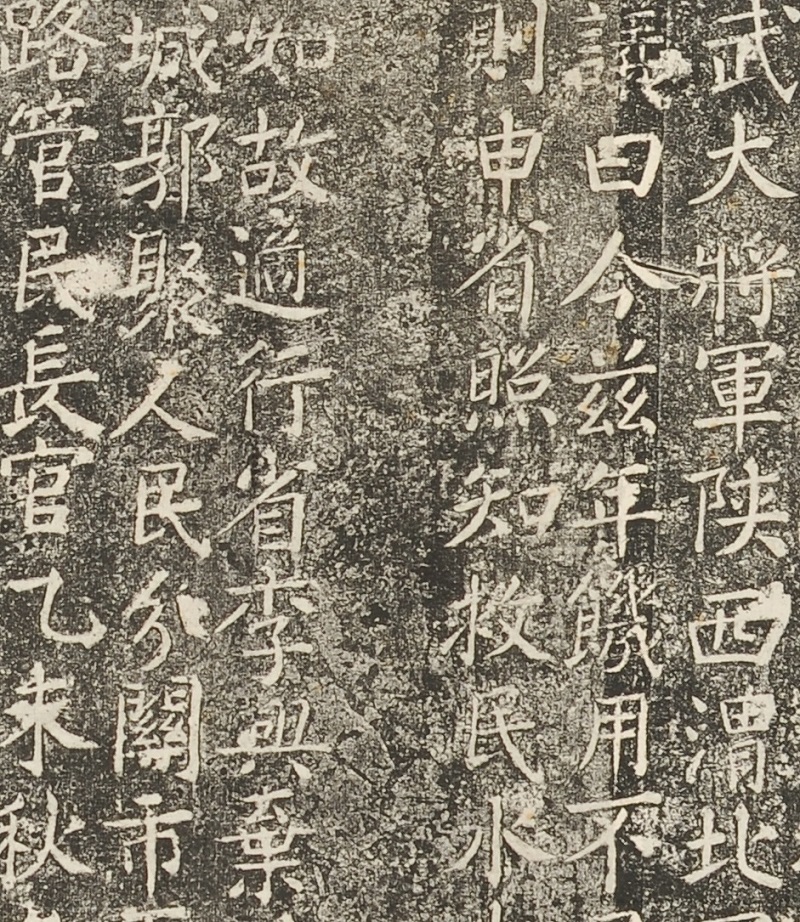 武大將軍陝西渭北
議曰今茲年饑用不
則申省照知救民水
如故適行省李興棄
城郭聚人民分關市
路管民長官乙未秋